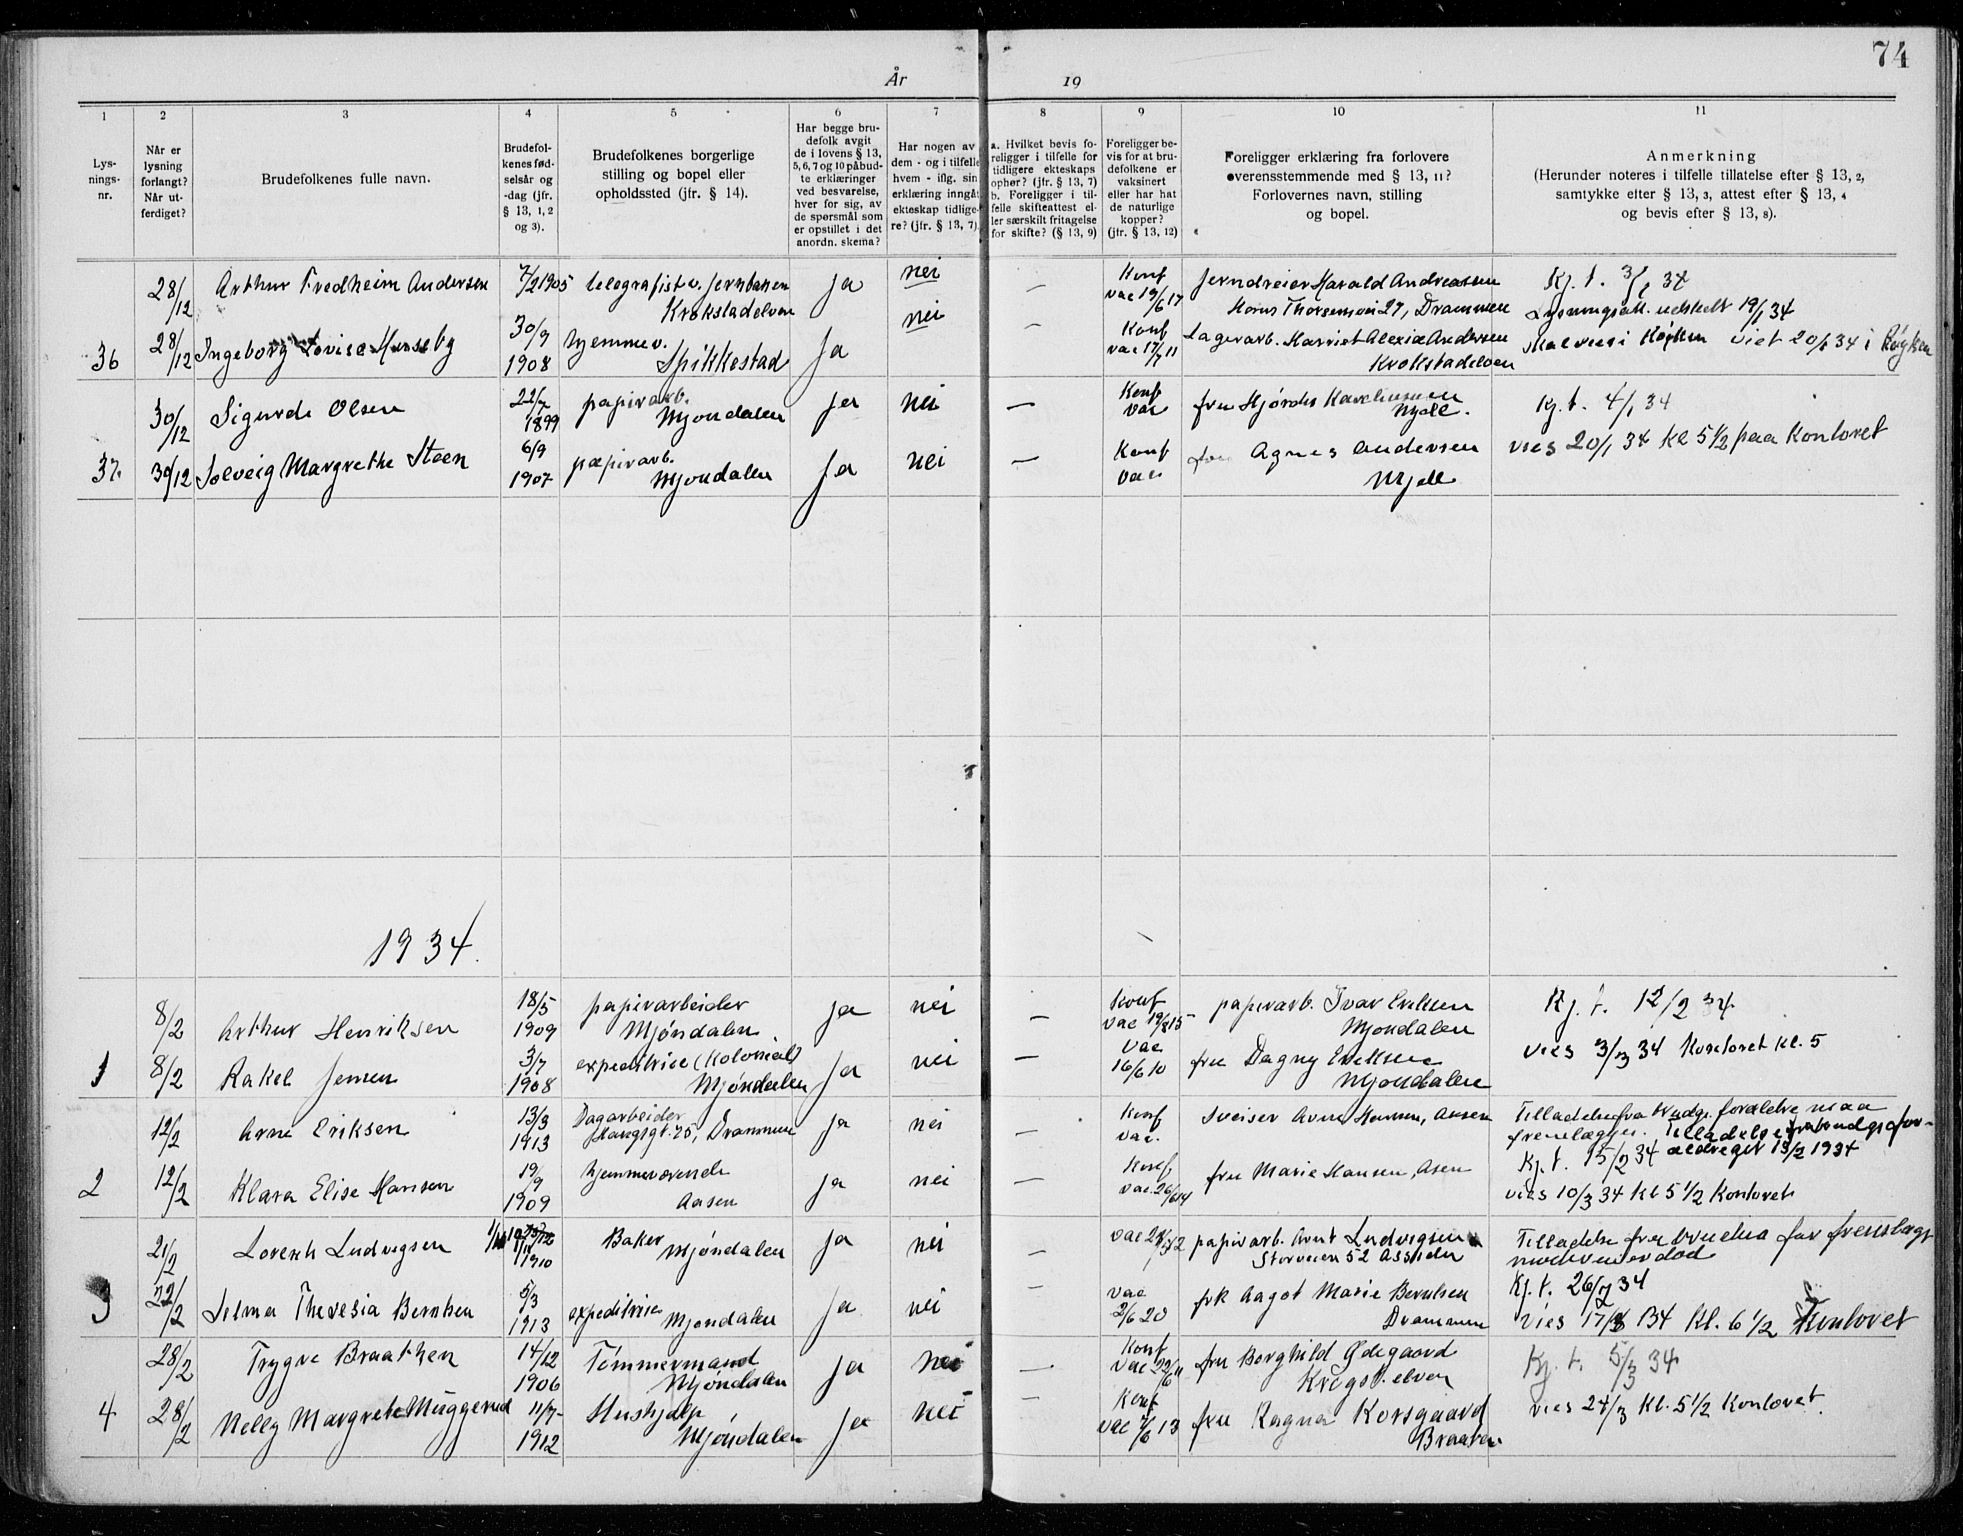 74
År 19
1 2 3 4 5 6 7 8 9 10 11
Lys-
nings-
nr.
Når er
lysning
forlangt?
Når ut-
ferdiget?
Brudefolkenes fulle navn.
Brudefol-
kenes fød-
selsår og
-dag (jfr.
§ 13, 1, 2
og 3).
Brudefolkenes borgerlige
stilling og bopel eller
opholdssted (jfr. § 14).
Har begge bru-
defolk avgit
de i lovens § 13,
5, 6, 7 og 10 påbud-
te erklæringer
ved besvarelse,
hver for sig, av
de spørsmål som
er opstillet i det
anordn. skema?
Har nogen av
dem - og i tilfelle
hvem - iflg. sin
erklæring inngåt
ekteskap tidlige-
re? (jfr. § 13, 7).
a. Hvilket bevis fo-
religger i tilfelle for
tidligere ekteskaps
ophør? (jfr. § 13, 7)
b. Foreligger i til-
felle skifteattest el-
ler særskilt fritagelse
for skifte? (§ 13, 9)
Foreligger be-
vis for at bru-
defolkene er
vaksinert
eller har hat
de naturlige
kopper?
(jfr. § 13, 12)
Foreligger erklæring fra forlovere
overensstemmende med § 13, 11?
Forlovernes navn, stilling
og bopel.
Anmerkning
(Herunder noteres i tilfelle tillatelse efter § 13, 2,
samtykke efter § 13, 3, attest efter § 13, 4
og bevis efter § 13, 8).
28/12 Arthur Fredheim Andersen 7/2 1905 telegrafist v. jernbanen ja nei — Konf jerndreier Harald Andreassen Kj. t. 3/1 34
Krokstadelven vac 19/6 17 Hans Thorsensvei 27, Drammen Lysningsatt. utstedt 19/1 34
36 28/12 Ingeborg Lovise Huseby 30/9 hjemmev. ja nei — Konf Lagerarb. Harriet Alexia Andersen Skal vies i Røyken viet 20/1 34 i Røyken
1908 Spikkestad vac 17/7 11 Krokstadelven
30/12 Sigurd Olsen 22/7 papirarb. ja nei — Konf fru Hjørdis Karlhusen Kj. t. 4/1 34
1899 Mjøndalen vac Mjdl.
37. 30/12 Solveig Margrethe Steen 6/9 papirarb. ja nei — Konf fru Agnes Andersen vies 20/1 34 kl 5 1/2 paa Kontoret
1907 Mjøndalen vac Mjdl
1934.
8/2 Arthur Henriksen 18/5 papirarbeider ja nei — Konf papirarb. Ivar Eriksen Kj. t. 12/2 34
1909 Mjøndalen vac 19/8 15 Mjøndalen
1 8/2 Rakel Jensen 3/7 expeditrice (Kolonial) ja nei — vac fru Dagny Eriksen vies 3/3 34 Kontoret kl. 5
1908 Mjøndalen 16/6 10 Mjøndalen
12/2 Arne Eriksen 13/3 Dagarbeider ja nei — Konf Sveiser Arne Hansen, Aasen Tilladelse fra brudg. forældre maa
1913 Haugsgt. 75, Drammen vac. fremlægges. Tilladelse fra brudgs for-
ældre git 13/2 1934
2 12/2 Klara Elise Hansen 19/9 hjemmeværende ja nei — Konf fru Marie Hansen, Aasen Kj. t. 15/2 34
1909 Aasen vac. 26/6 14 vies 10/3 34 kl 5 1/2 Kontoret
21/2 Lorentz Ludvigsen 1910 Baker Mjøndalen ja nei — vac papirarb. Arnt Ludvigsen Tilladelse fra brudens far fremlagt
Storveien 52 Assiden moderen er død
3 22/2 Selma Theresia Berntsen 5/3 expeditrice ja nei — vac frk Aagot Marie Berntsen Kj. t. 26/2 34
1913 Mjøndalen 2/6 20 Drammen vies 17/3 34 kl. 6 1/2 Kontoret
28/2 Trygve Braathen 14/12 Tømmermand ja nei — Konf fru Borghild Ødegaard Kj. t. 5/3 34
1906 Mjøndalen vac 22/6 11 Krogstadelven
4 28/2 Nelly Margrete Muggerud 11/7 Hushjelp ja nei — Konf fru Ragna Korsgaard vies 24/3 kl. 5 1/2 Kontoret
1912 Mjøndalen vac 4/6 13 Braaten